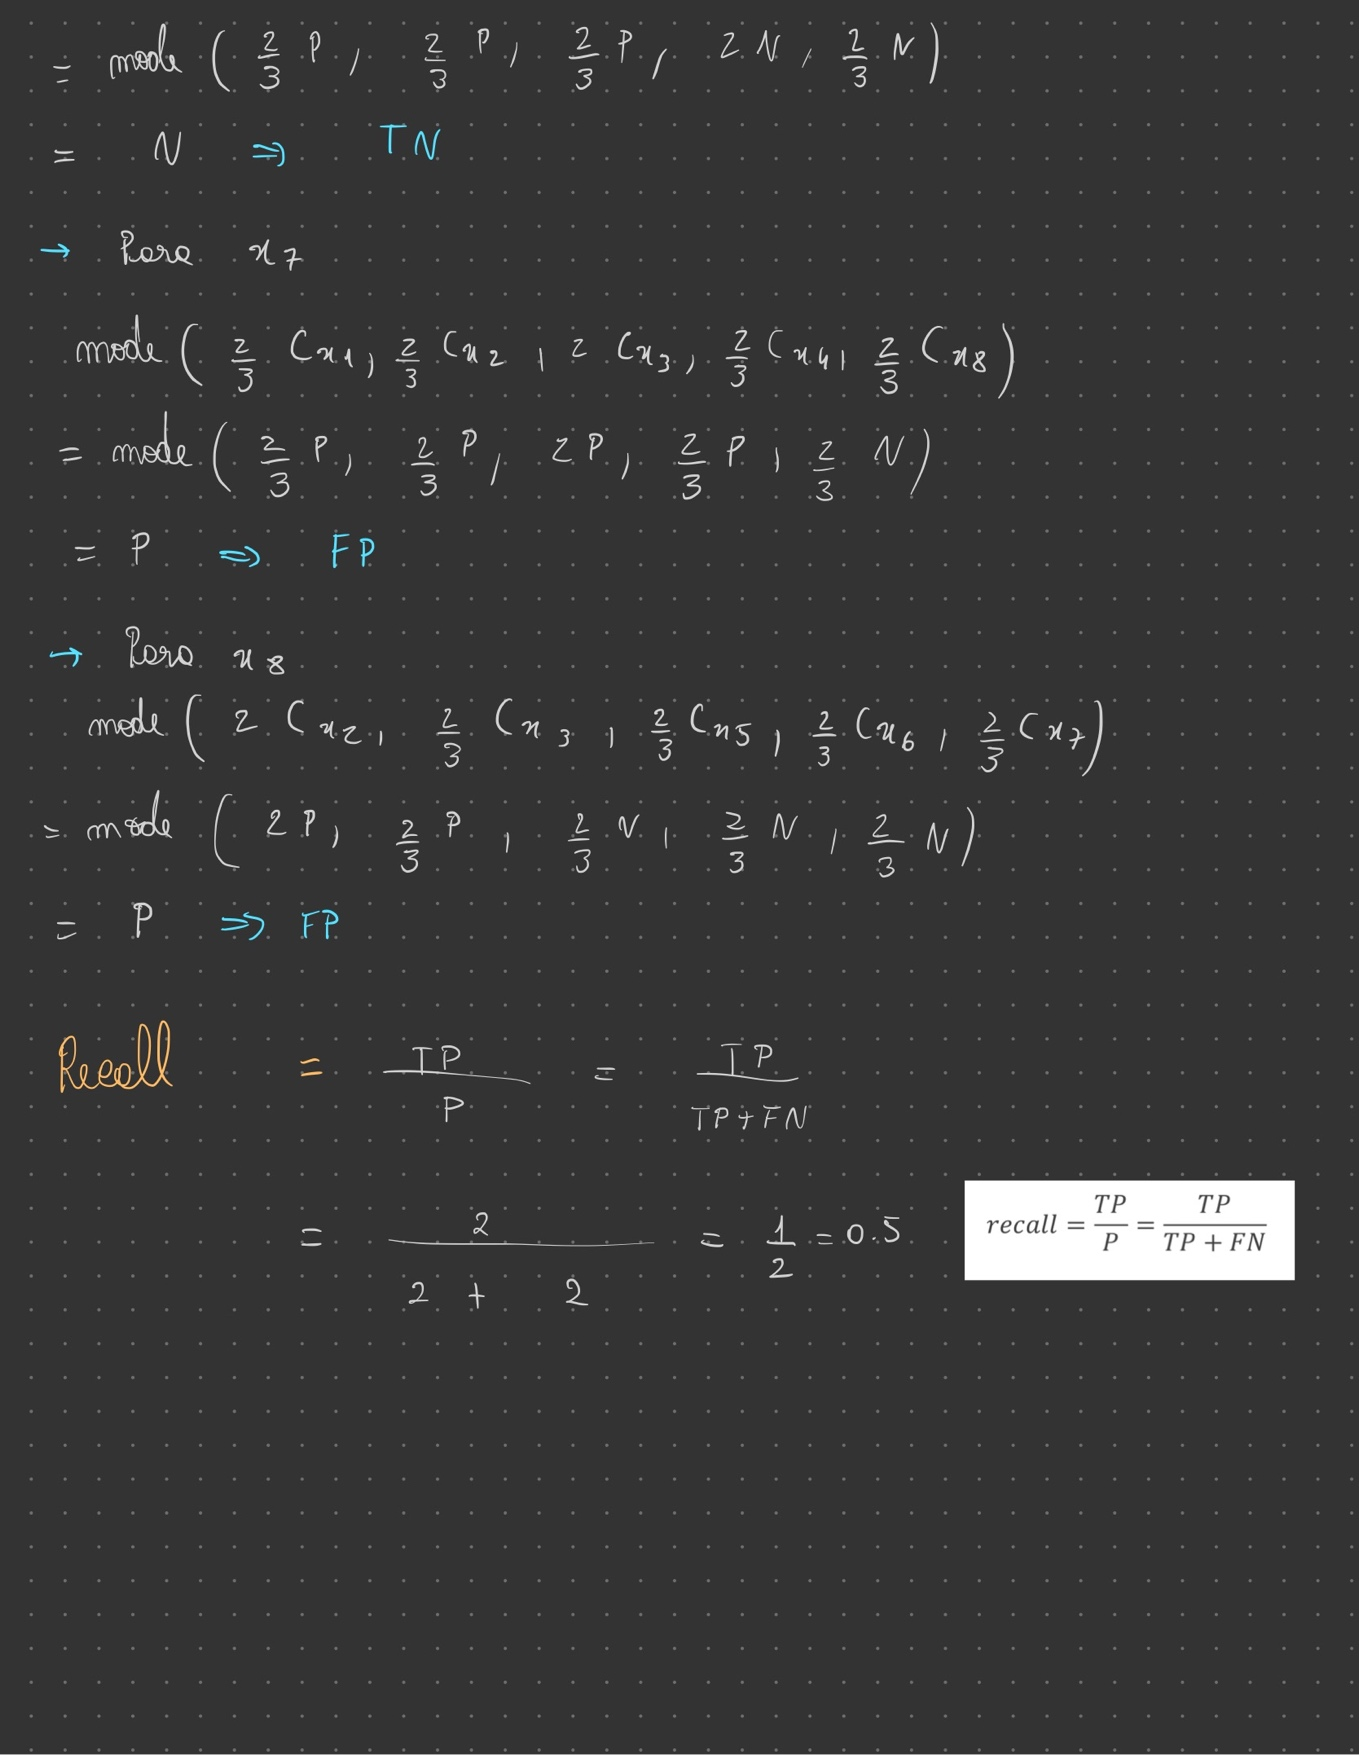 = mode ( 2/3 P, 2/3 P, 2/3 P, 2 N, 2/3 N )
= N ⇒ TN
→ Para x7
mode ( 2/3 Cx1, 2/3 Cx2, 2 Cx3, 2/3 Cx4, 2/3 Cx8 )
= mode ( 2/3 P, 2/3 P, 2 P, 2/3 P, 2/3 N )
= P ⇒ FP
→ Para x8
mode ( 2 Cx2, 2/3 Cx3, 2/3 Cx5, 2/3 Cx6, 2/3 Cx7 )
= mode ( 2 P, 2/3 P, 2/3 N, 2/3 N, 2/3 N )
= P ⇒ FP
Recall = TP/P = TP/(TP + FN)
= 2/(2 + 2) = 1/2 = 0.5
recall = TP/P = TP/(TP + FN)